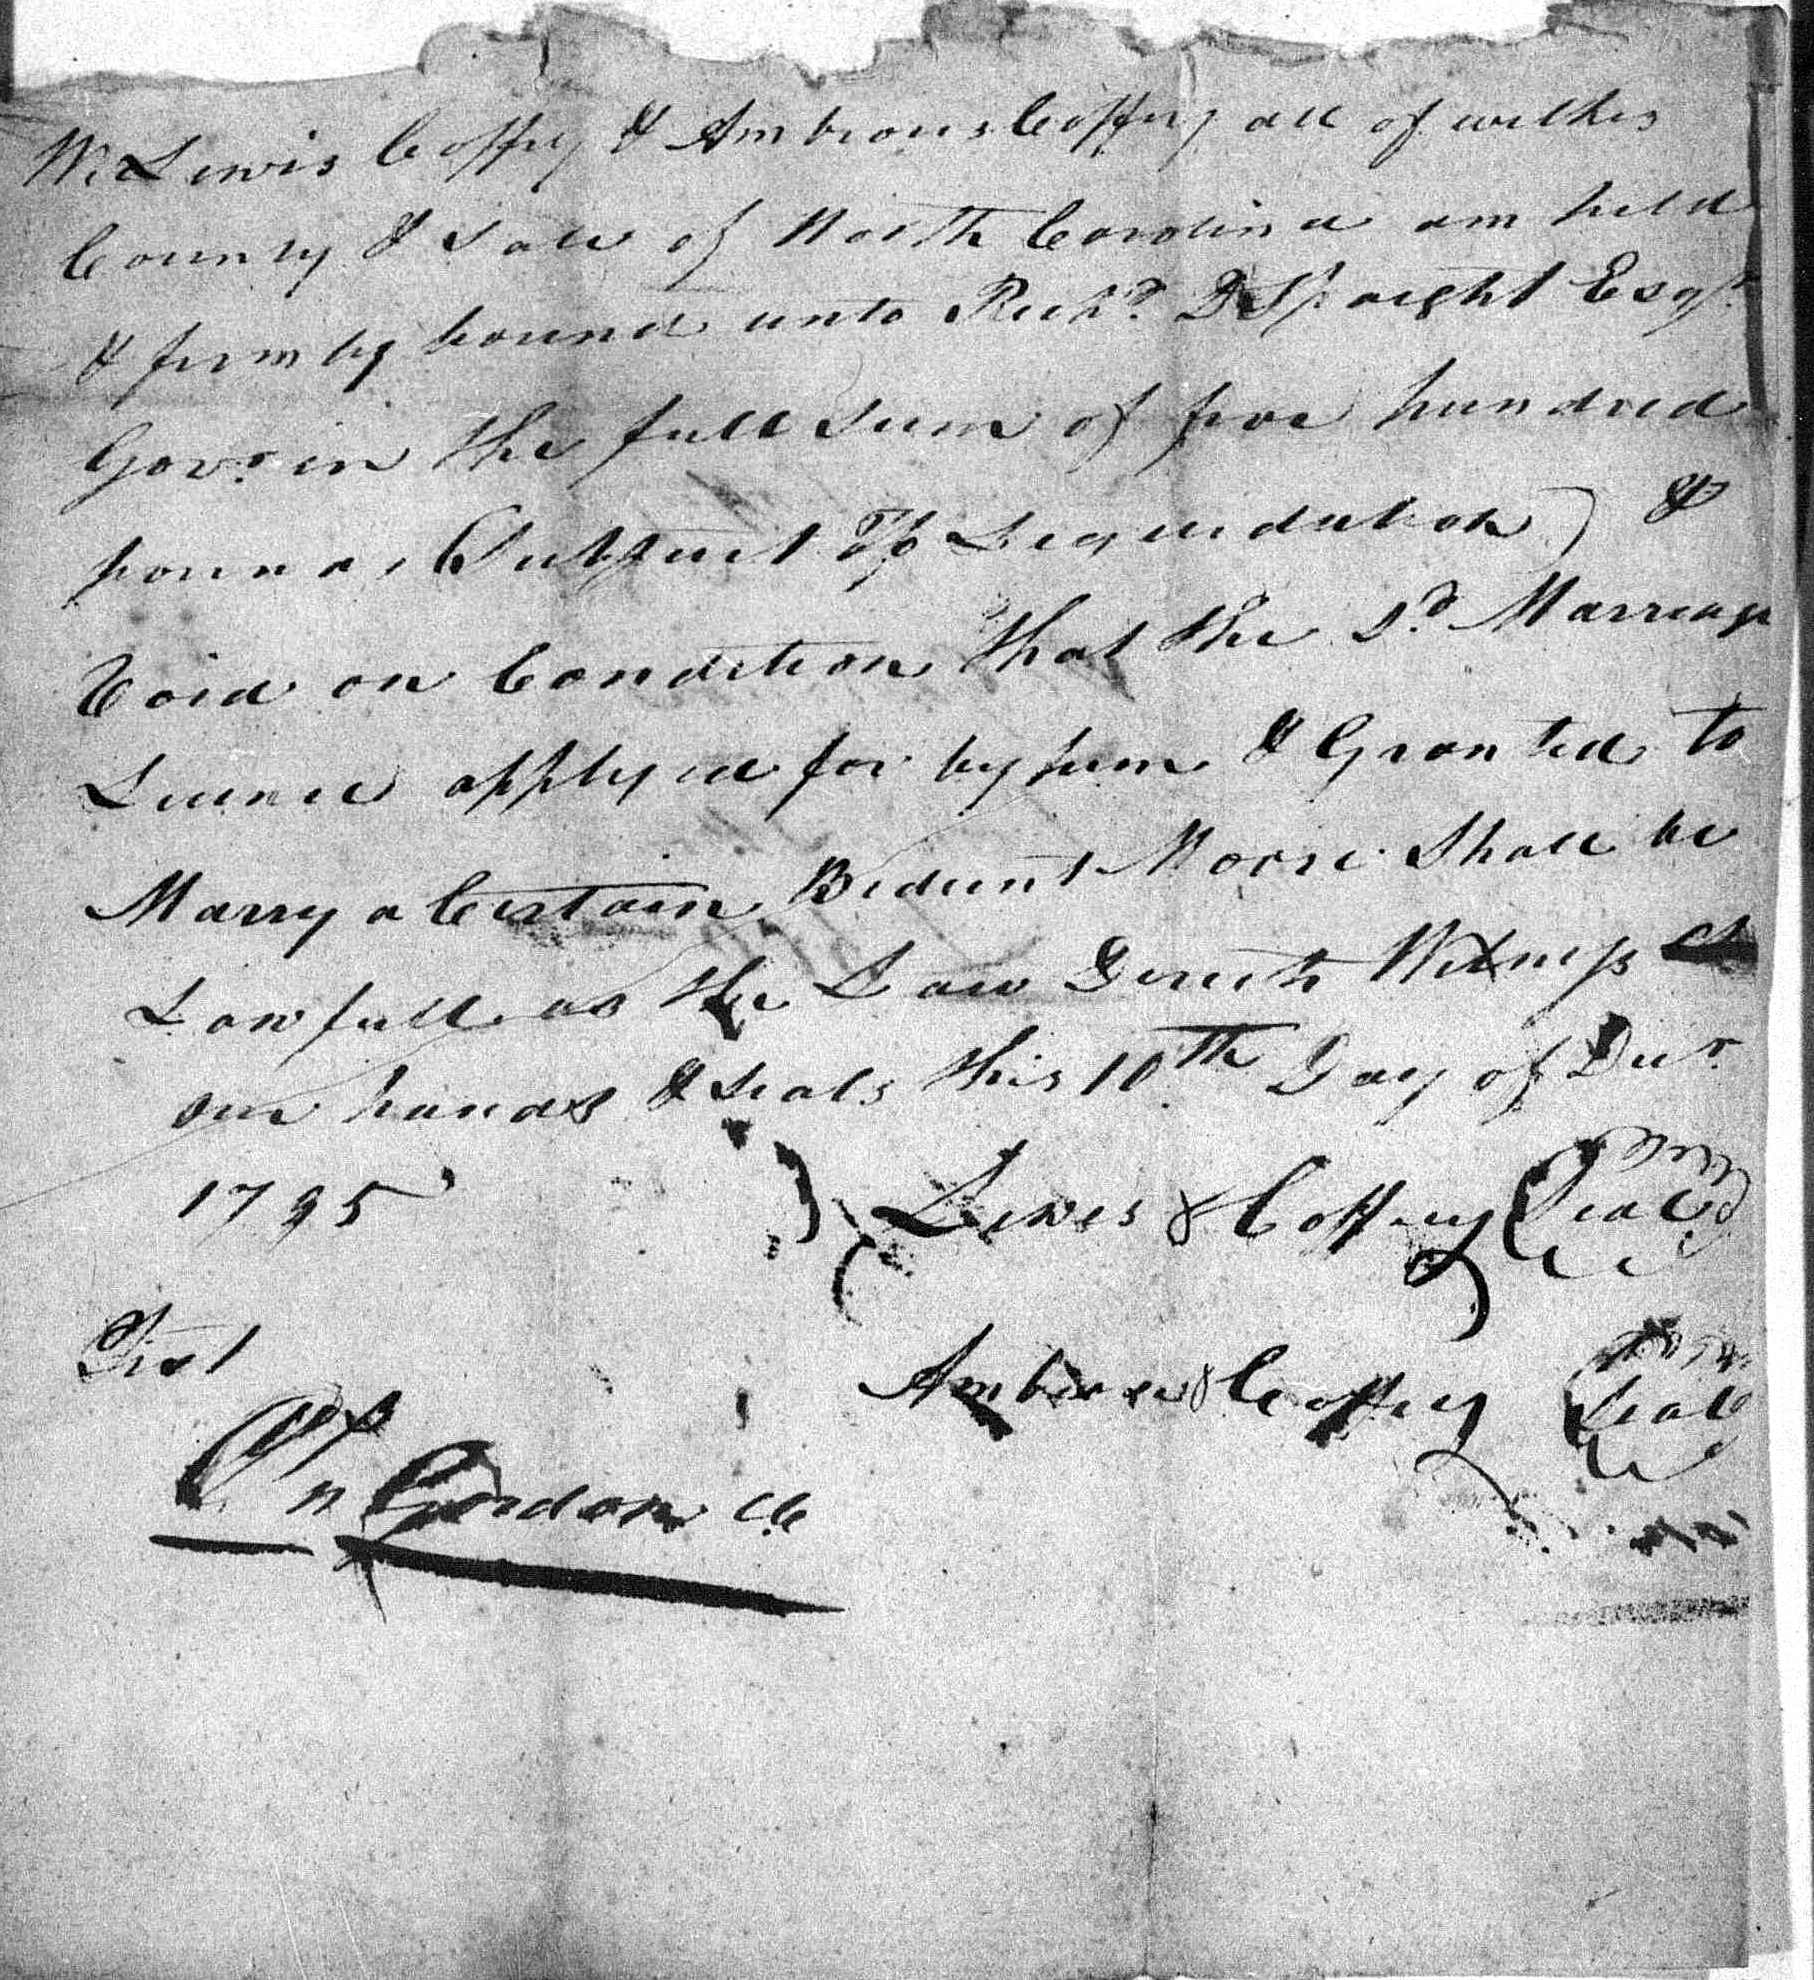 We Lewis Coffey & Ambrous Coffey all of wilkes
County & State of North Carolina am held
& firmly bound unto Richd. D Spaight Esqr.
Govr. in the full sum of five hundred
pounds, (Subject To Liquidation) &
Void on Condition that the Sd. Marriage
Licence applyed for by him & Granted to
Marry a Certain Bidunt Moore Shall be
Lawfull as the Law Directs Witness
our hands & Seals this 10th Day of Decr.
1795
Lewis Coffey Seal
Test
Ambrose Coffey Seal
Gordon CC